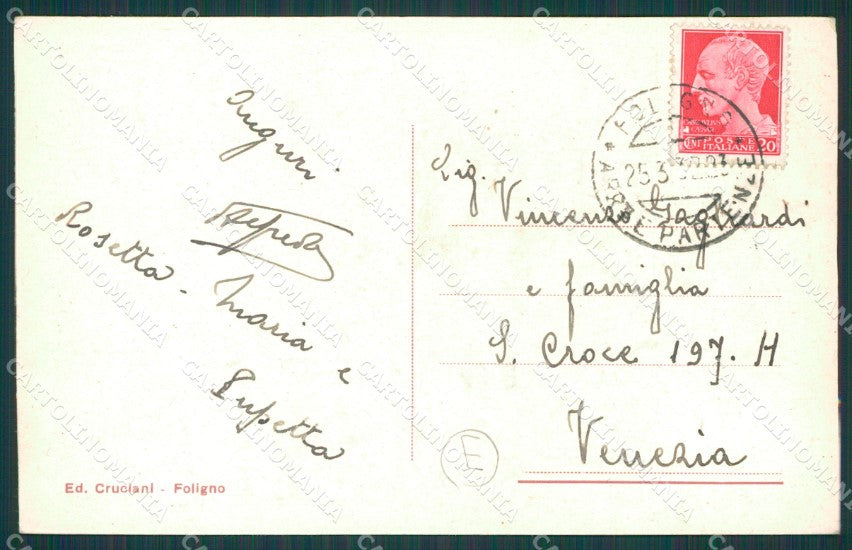 Auguri.
Alfredo
Rosetta - Maria e
Pupetta
Sig. Vincenzo Gagliardi
e famiglia
S. Croce 197. H
Venezia
E
Ed. Cruciani - Foligno
CENT POSTE 20
ITALIANE
FOLIGNO
25.3
ARRI E PARTENZE
CARTOLINOMANIA